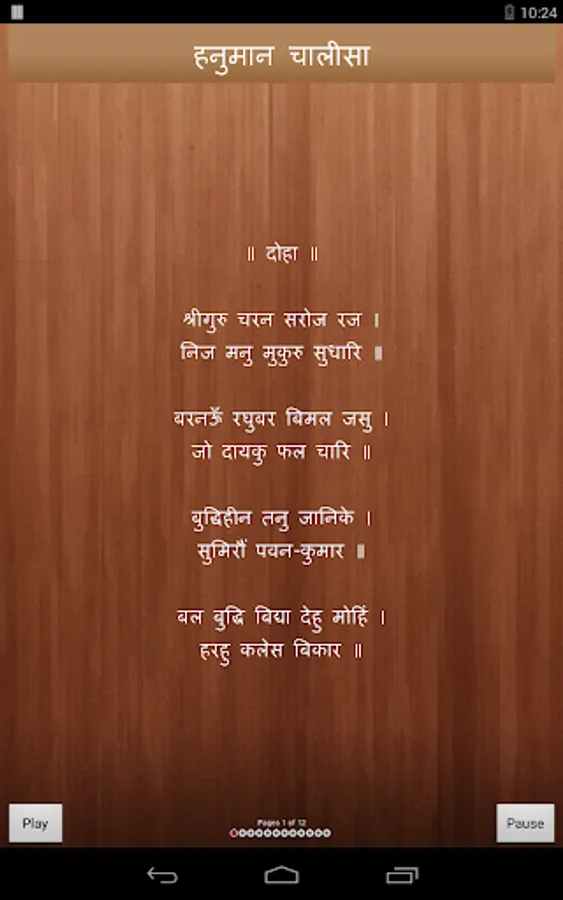 10:24
हनुमान चालीसा
॥ दोहा ॥
श्रीगुरु चरन सरोज रज ।
निज मनु मुकुरु सुधारि
बरनऊँ रघुबर बिमल जसु ।
जो दायकु फल चारि ॥
बुद्धिहीन तनु जानिके ।
सुमिरौं पवन-कुमार
बल बुद्धि बिद्या देहु मोहिं ।
हरहु कलेस बिकार ॥
Pages 1 of 12
Play
Pause